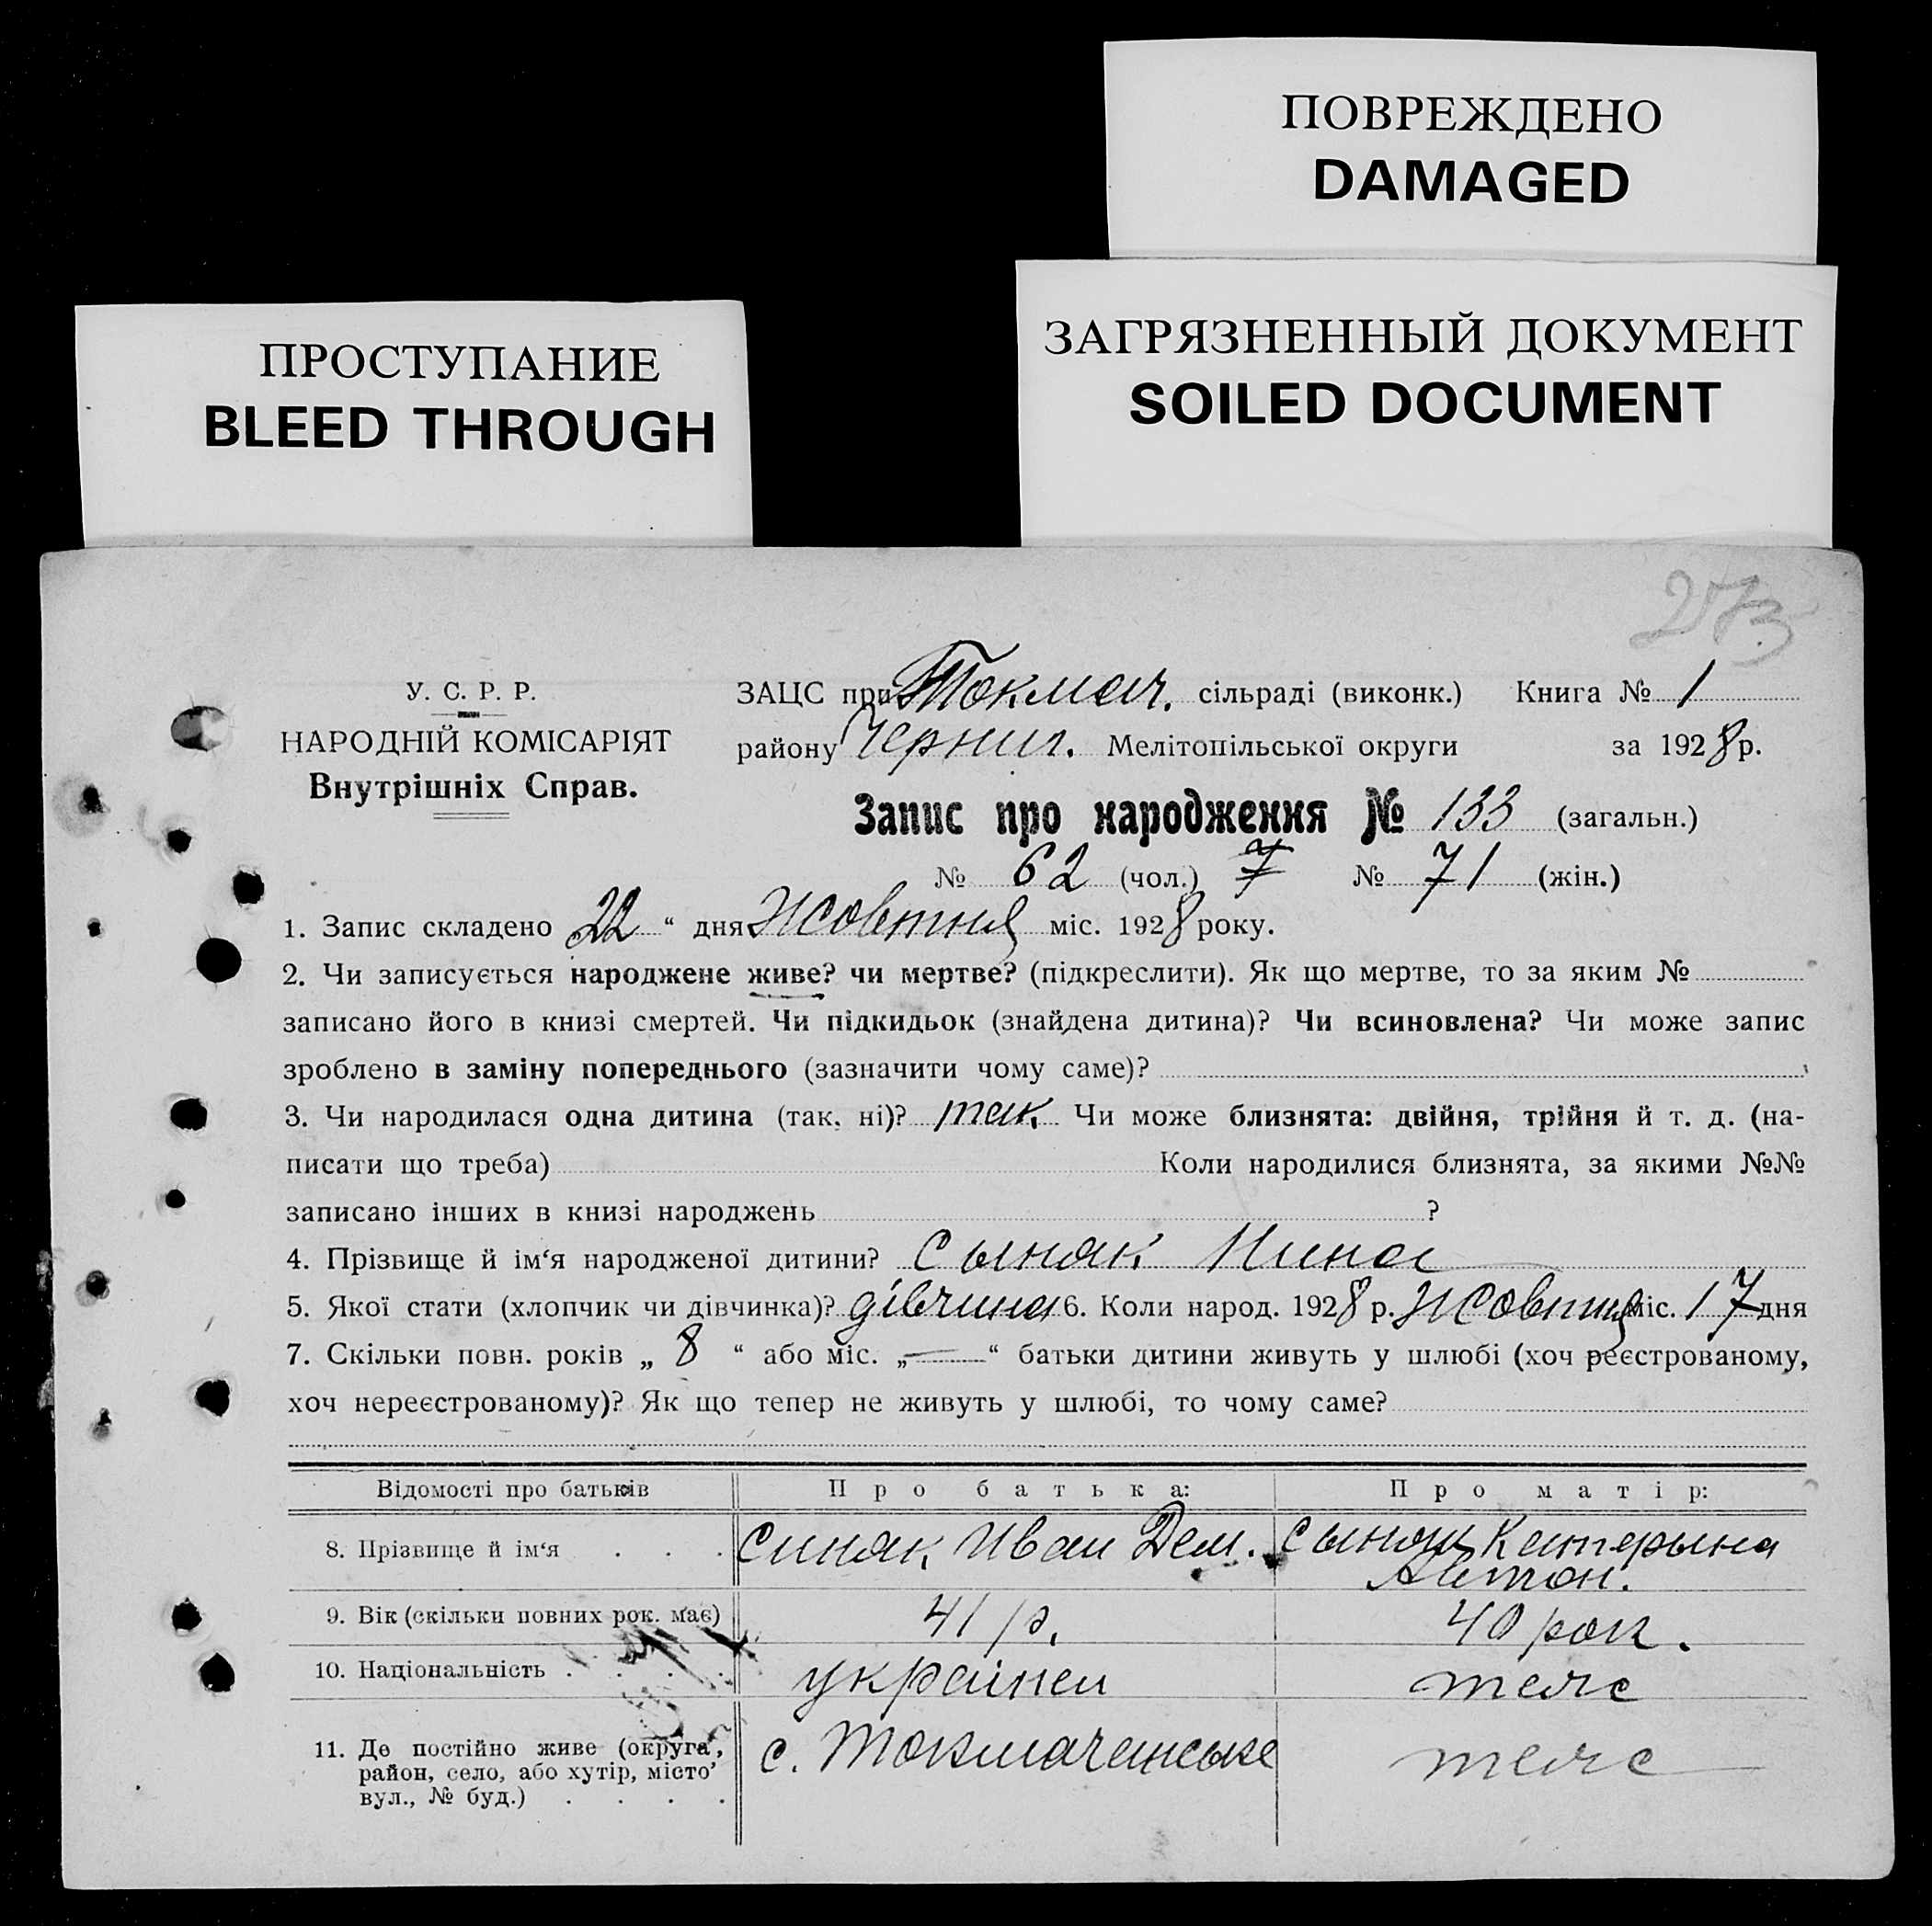 ПОВРЕЖДЕНО
DAMAGED
ПРОСТУПАНИЕ
BLEED THROUGH
ЗАГРЯЗНЕННЫЙ ДОКУМЕНТ
SOILED DOCUMENT
273
У. С. Р. Р.
НАРОДНІЙ КОМІСАРІЯТ
Внутрішніх Справ.
ЗАЦС при Токмач. сільраді (виконк.) Книга № 1
району Черниг. Мелітопільської округи за 1928 р.
Запис про народження № 133 (загальн.)
№ 62 (чол.) 7 № 71 (жін.)
1. Запис складено 22 “ дня Жовтня міс. 1928 року.
2. Чи записується народжене живе? чи мертве? (підкреслити). Як що мертве, то за яким №
записано його в книзі смертей. Чи підкидьок (знайдена дитина)? Чи всиновлена? Чи може запис
зроблено в заміну попереднього (зазначити чому саме)?
3. Чи народилася одна дитина (так, ні)? так Чи може близнята: двійня, трійня й т. д. (на-
писати що треба) Коли народилися близнята, за якими №№
записано інших в книзі народжень ?
4. Прізвище й ім‘я народженої дитини? Сыняк Нина
5. Якої стати (хлопчик чи дівчинка)? дівчина 6. Коли народ. 1928 р. Жовтня міс. 17 дня
7. Скільки повн. років „ 8 “ або міс. „ — “ батьки дитини живуть у шлюбі (хоч реєстрованому,
хоч нереєстрованому)? Як що тепер не живуть у шлюбі, то чому саме?
Відомості про батьків Про батька: Про матір:
8. Прізвище й ім‘я . . . Синяк Иван Дем. Сыняк Катерына
Антон.
9. Вік (скільки повних рок. має) 41 р. 40 рок.
10. Національність . . . . українец теже
11. Де постійно живе (округа, с. Токмачанське теже
район, село, або хутір, місто
вул., № буд.) . . . .